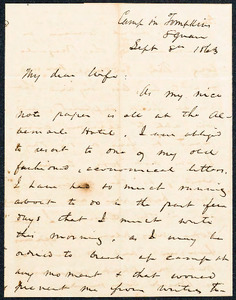 Camp in Tompkins
Square
Sept 8th 1863
My dear Wife:
As my nice
note paper is all at the Al-
bemarle Hotel, I am obliged
to resort to one of my old
fashioned, economical letters.
I have had so much running
about to do in the past few
days that I must write
this morning, as I may be
ordered to break up camp at
any moment & that would
prevent me from writing the